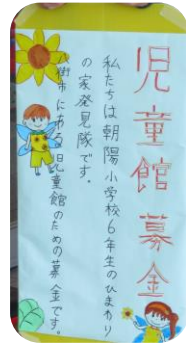 児童館募金
私たちは朝陽小学校6年生のひまわり
の家発見隊です。
八街市にある児童館のための募金です。